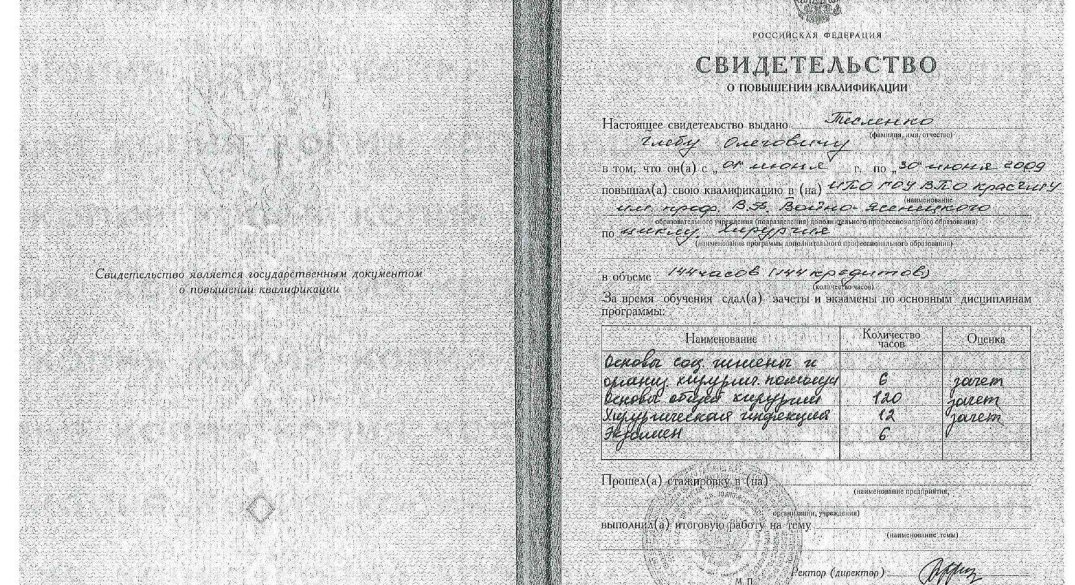 Свидетельство является государственным документом
о повышении квалификации
РОССИЙСКАЯ ФЕДЕРАЦИЯ
СВИДЕТЕЛЬСТВО
О ПОВЫШЕНИИ КВАЛИФИКАЦИИ
Настоящее свидетельство выдано Тесленко
(фамилия, имя, отчество)
Глебу Олеговичу
в том, что он(а) с „01 июня г. по „30 июня 2009
повышал(а) свою квалификацию в (на) ИПО ГОУ ВПО КрасГМУ
(наименование
им. проф. В.Ф. Войно-Ясенецкого
образовательного учреждения (подразделения) дополнительного профессионального образования)
по циклу, Хирургия
(наименование программы дополнительного профессионального образования)
в объеме 144 часов (144 кредитов)
(количество часов)
За время обучения сдал(а) зачеты и экзамены по основным дисциплинам
программы:
Наименование Количество часов Оценка
Основы соц. гигиены и
органиц. хирургич. помощи 6 зачет
Основы общей хирургии 120 зачет
Хирургическая инфекция 12 зачет
Экзамен 6
Прошел(а) стажировку в (на)
(наименование предприятия,
организации, учреждения)
выполнил(а) итоговую работу на тему
(наименование темы)
Ректор (директор)
М. П.